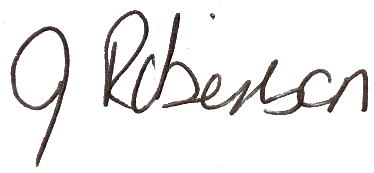 J Robinson